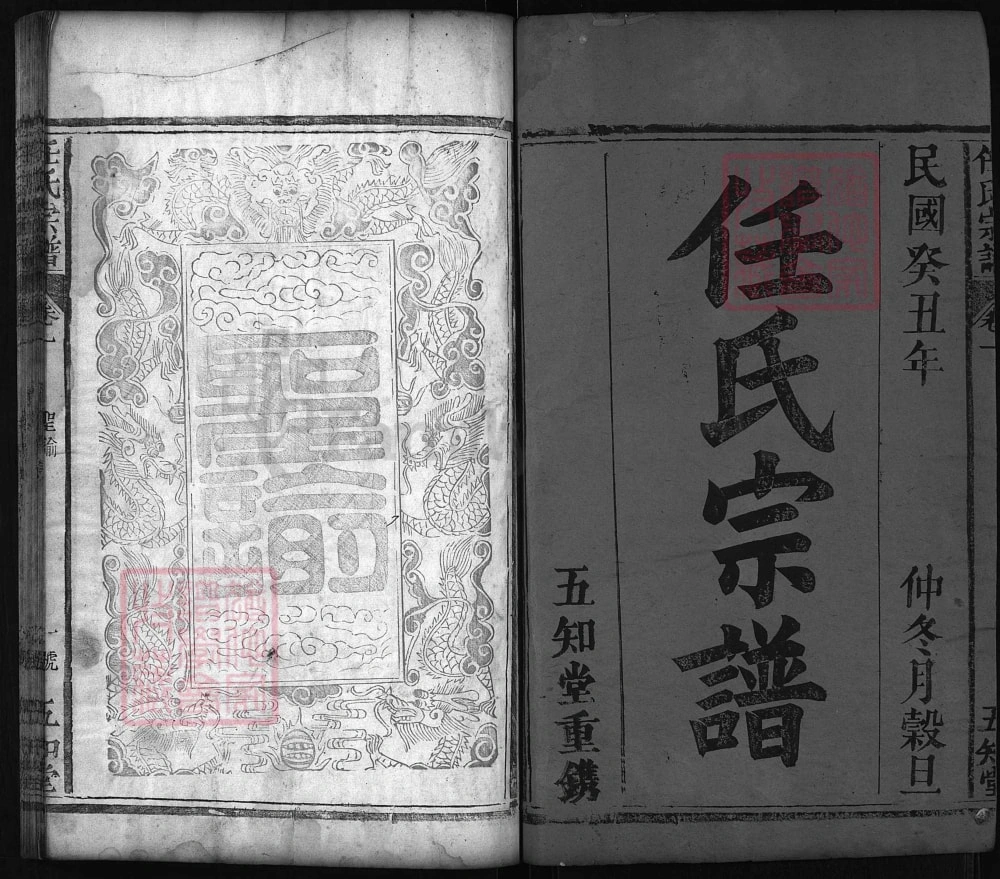 任氏宗譜
卷一
五知堂
民國癸丑年
仲冬月穀旦
任氏宗譜
五知堂重鐫
聖諭
任氏宗譜
卷一
聖諭
一號
五知堂